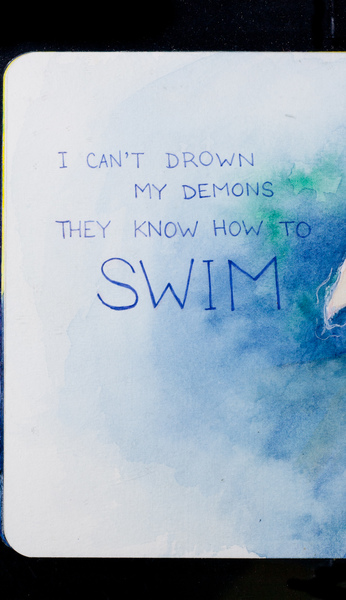 I CAN'T DROWN
MY DEMONS
THEY KNOW HOW TO
SWIM